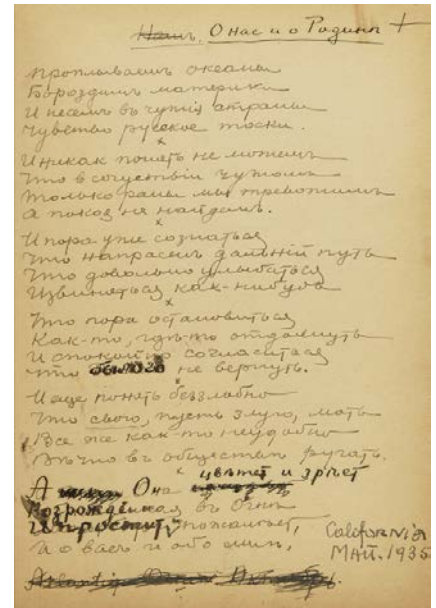 О нас и о Родинѣ
Проплываемъ океаны
Бороздимъ материки
И несемъ въ чужія страны
Чувство русское тоски.
И никак понять не можемъ
Что в сочувствіи чужом
Только раны мы тревожимъ
А покоя не найдемъ.
И пора уже сознаться
Что напрасенъ дальній путь
Что довольно улыбаться
Извиняться как-нибудь
Что пора остановиться
Как-то, гдѣ-то отдохнуть
И спокойно согласиться
Что былого не вернуть.
И еще понять беззлобно
Что свою, пусть злую, мать
Все же как-то неудобно
Вѣчно въ обществѣ ругать.
А Она цвѣтет и зрѣет
Возрожденная въ Огнѣ
И простит и пожалѣет,
И о васъ и обо мнѣ.
California
Май. 1935